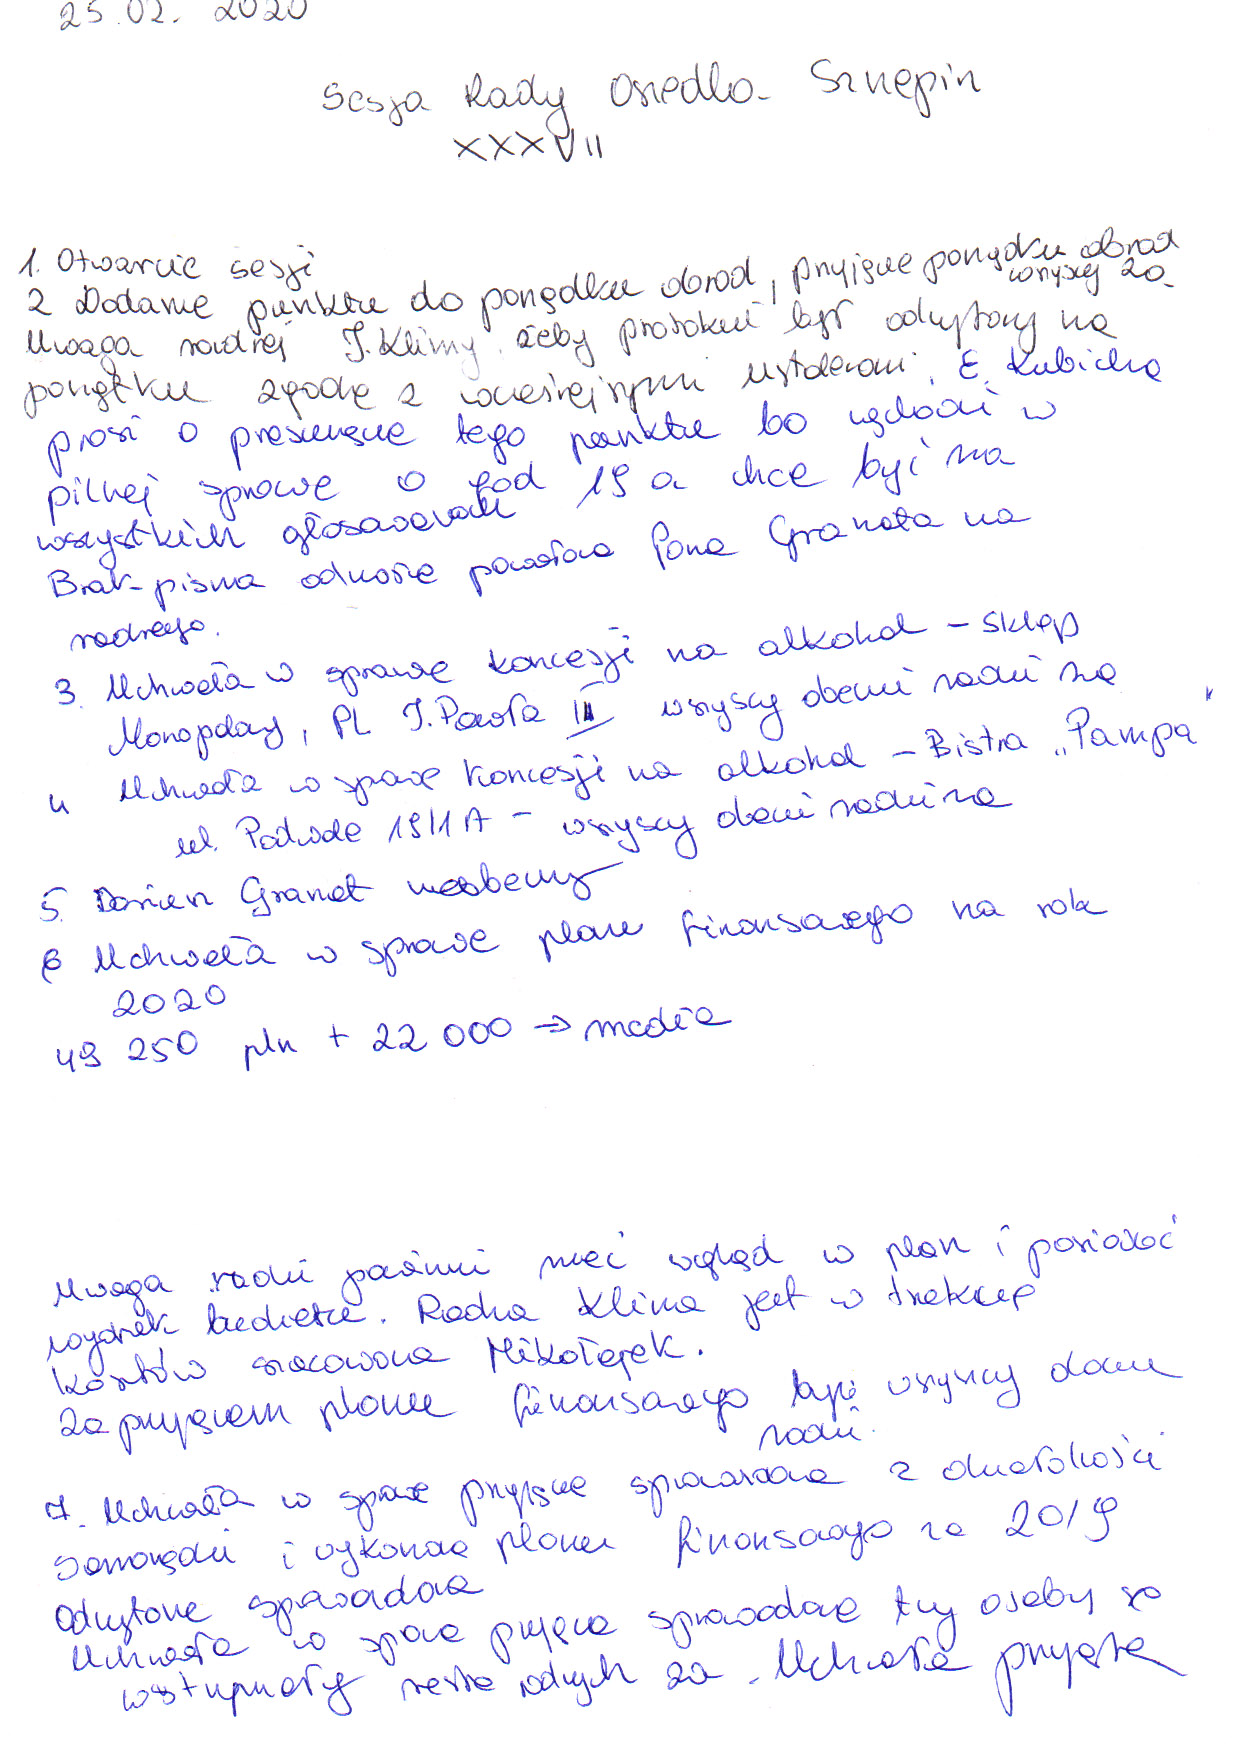 25.02. 2020
Sesja Rady Osiedla Szczepin
XXXVII
1. Otwarcie sesji
2 Dodanie punktu do porządku obrad, przyjęcie porządku obrad
wszyscy za
Uwaga radnej J. Klimy, żeby protokół był odczytany na
początku zgodnie z wcześniejszymi ustaleniami. E. Kubicka
prosi o przesunięcie tego punktu bo wychodzi w
pilnej sprawie o god 19 a chce być na
wszystkich głosowaniach
Brak pisma odnośnie powołania Pana Granata na
radnego.
3. Uchwała w sprawie koncesji na alkohol – sklep
Monopolowy, PL J. Pawła II wszyscy obecni radni za
4 Uchwała w sprawie koncesji na alkohol – Bistra „Pampa"
ul. Podwale 19/1A – wszyscy obecni radni za
5. Damian Granat nieobecny
6 Uchwała w sprawie planu finansowego na rok
2020
49 250 pln + 22 000 → media
Uwaga radni powinni mieć wgląd w plan i posiadać
wydruk budżetu. Radna Klima jest w trakcie
kosztów szacowana Mikołajek.
Za przyjęciem planu finansowego byli wszyscy
radni.
7. Uchwała w sprawie przyjęcie sprawozdania z działalności
samorządu i wykonanie planu finansowego za 2019
Odczytanie sprawozdania
Uchwała w sprawie przyjęcia sprawozdanie trzy osoby się
wstrzymały reszta radnych za. Uchwała przyjęta